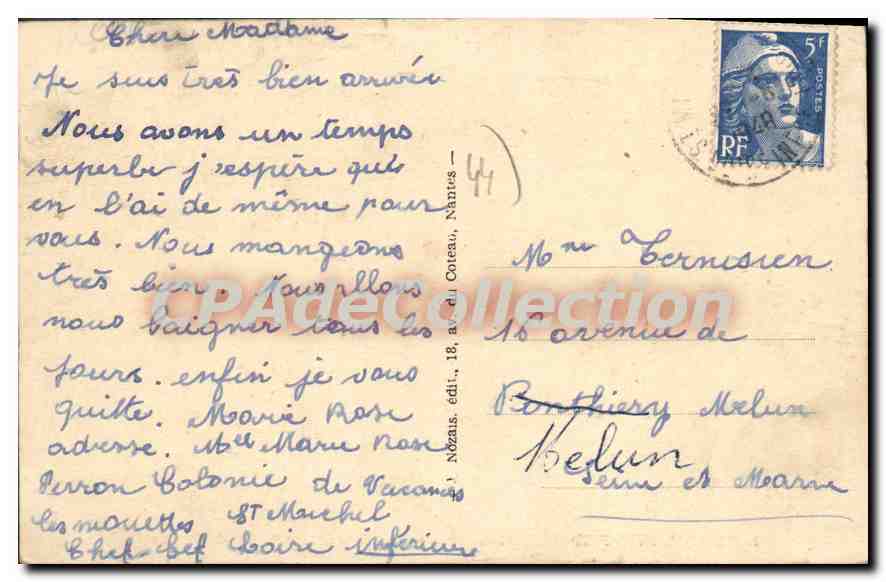 Chère Madame
Je suis très bien arrivée
Nous avons un temps
superbe j'espère qu'il
en l'ai de même pour
vous. Nous mangeons
très bien. Nous allons
nous baigner tous les
jours. enfin je vous
quitte. Marie Rose
adresse. Melle Marie Rose
Perron Colonie de Vacances
les mouettes St Michel
Chef Chef Loire inférieure
Nozais, édit., 18, av. du Coteau, Nantes —
44
5F
POSTES
RF
Mme Ternisien
16 avenue de
Ponthierry Melun
Melun
Seine et Marne
CPAdeCollection